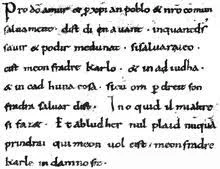 Pro dō amur et p xpian poblo et nrō comun
saluament. dist di en auant. inquantds
sauir et podir medunat. sisaluaraieo.
cist meon fradre karlo. et in adiudha.
et in cad huna cosa. sicu om p dreit son
fradra saluar dist. Ino quid il mialtre
si fazet. Et abludher nul plaid nūquā
prindrai qui meon uol cist. meonfradre
karle in damno sit.